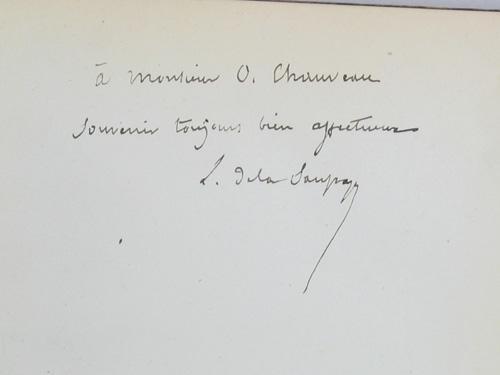 à Monsieur O. Chauveau
souvenir toujours bien affectueux
L. de la Saussaye